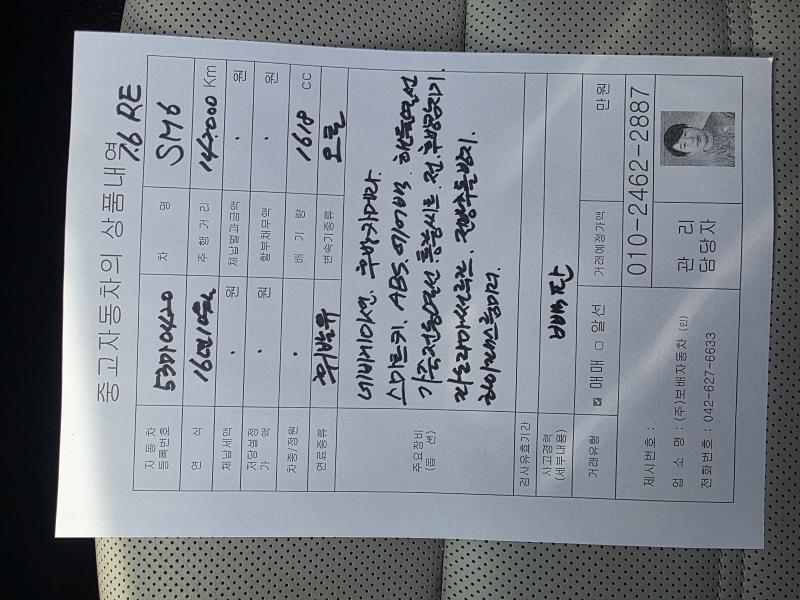 중고자동차의 상품내역
1.6 RE
자동차 등록번호 차 명 SM6
연 식 16년10월 주 행 거 리 147000 Km
체납세액 . 원 체납벌과금액 . 원
저당설정 가 액 . 원 할부채무액 . 원
차종/정원 . 배 기 량 1618 cc
연료종류 휘발유 변속기종류 오토
주요장비 (옵 션)
네비게이션. 후방카메라.
스마트키. ABS. 에어백. 핸들열선
가죽전동열선통풍시트. 전.후방감지기.
파노라마선루프. 전방추돌방지.
하이패스룸미러.
검사유효기간
사고경력 (세부내용)
거래유형 ☑ 매매 □ 알선 거래예정가액 만원
제시번호 :
업 소 명 : (주)보배자동차 (인)
전화번호 : 042-627-6633
010-2462-2887
관 리
담당자